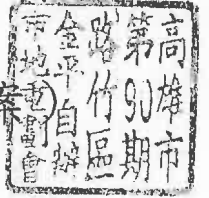 高雄市
第90期
路竹區
金平自辦
市地重劃會